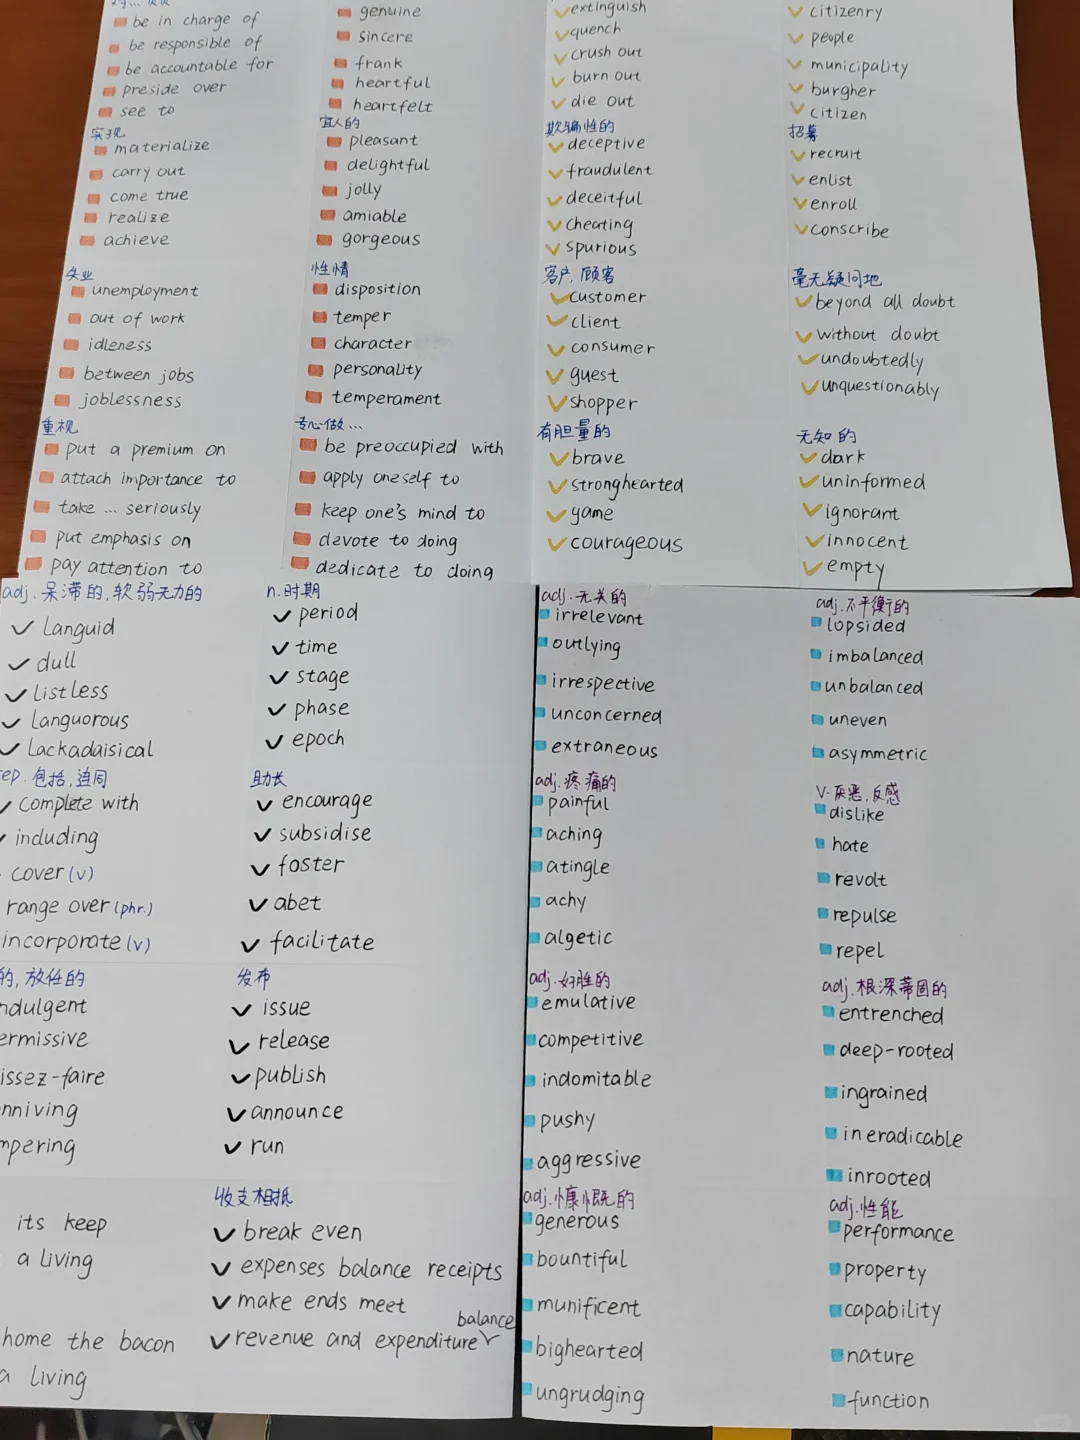 be in charge of
be responsible of
be accountable for
preside over
see to
实现
materialize
carry out
come true
realize
achieve
失业
unemployment
out of work
idleness
between jobs
joblessness
重视
put a premium on
attach importance to
take ... seriously
put emphasis on
pay attention to
genuine
sincere
frank
heartful
heartfelt
宜人的
pleasant
delightful
jolly
amiable
gorgeous
性情
disposition
temper
character
personality
temperament
专心做...
be preoccupied with
apply oneself to
keep one's mind to
devote to doing
dedicate to doing
extinguish
quench
crush out
burn out
die out
欺骗性的
deceptive
fraudulent
deceitful
cheating
spurious
客户,顾客
customer
client
consumer
guest
shopper
有胆量的
brave
stronghearted
game
courageous
citizenry
people
municipality
burgher
citizen
招募
recruit
enlist
enroll
conscribe
毫无疑问地
beyond all doubt
without doubt
undoubtedly
unquestionably
无知的
dark
uninformed
ignorant
innocent
empty
adj.呆滞的,软弱无力的
languid
dull
listless
languorous
lackadaisical
ep.包括,连同
complete with
including
cover (v)
range over (phr.)
incorporate (v)
的,放任的
ndulgent
ermissive
issez-faire
nniving
mpering
its keep
a living
home the bacon
a living
n.时期
period
time
stage
phase
epoch
助长
encourage
subsidise
foster
abet
facilitate
发布
issue
release
publish
announce
run
收支相抵
break even
expenses balance receipts
make ends meet
balance
revenue and expenditure
adj.无关的
irrelevant
outlying
irrespective
unconcerned
extraneous
adj.疼痛的
painful
aching
atingle
achy
algetic
adj.好胜的
emulative
competitive
indomitable
pushy
aggressive
adj.慷慨的
generous
bountiful
munificent
bighearted
ungrudging
adj.不平衡的
lopsided
imbalanced
unbalanced
uneven
asymmetric
v.厌恶,反感
dislike
hate
revolt
repulse
repel
adj.根深蒂固的
entrenched
deep-rooted
ingrained
ineradicable
inrooted
adj.性能
performance
property
capability
nature
function